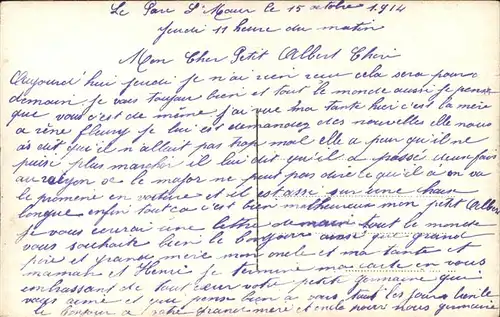 Le Parc St Maur le 15 octobre 1914
Jeudi 11 heure du matin
Mon Cher Petit Albert Cheri
Aujourd hui jeudi je n'ai rien reçu cela sera pour
demain je vais toujour bien et tout le monde aussi je pense
que vous c'est de même j'ai vue ma tante hier c'est la mère
a réne fleury je lui est demandez des nouvelles elle nous
as dit qu'il n'allait pas trop mal elle a peur qu'il ne
puise plus marcher il lui dit qu'il a passé
au rayon le major ne peut pas dire le qu'il a on va
le promene en voiture et il est assi sur une chaise
longue enfin tout ca c'est bien malheureux mon petit Albert
je vous ecrirai une lettre demain tout le monde
vous souhaite bien le bonjour ainsi que grand
père et grande mère mon oncle et ma tante et
maman et Henri je termine ma carte en vous
embrassant de tout cœur votre petit germaine qui
vous aime et que pense bien a vous tout les jours
le bonjour a votre grand mère et